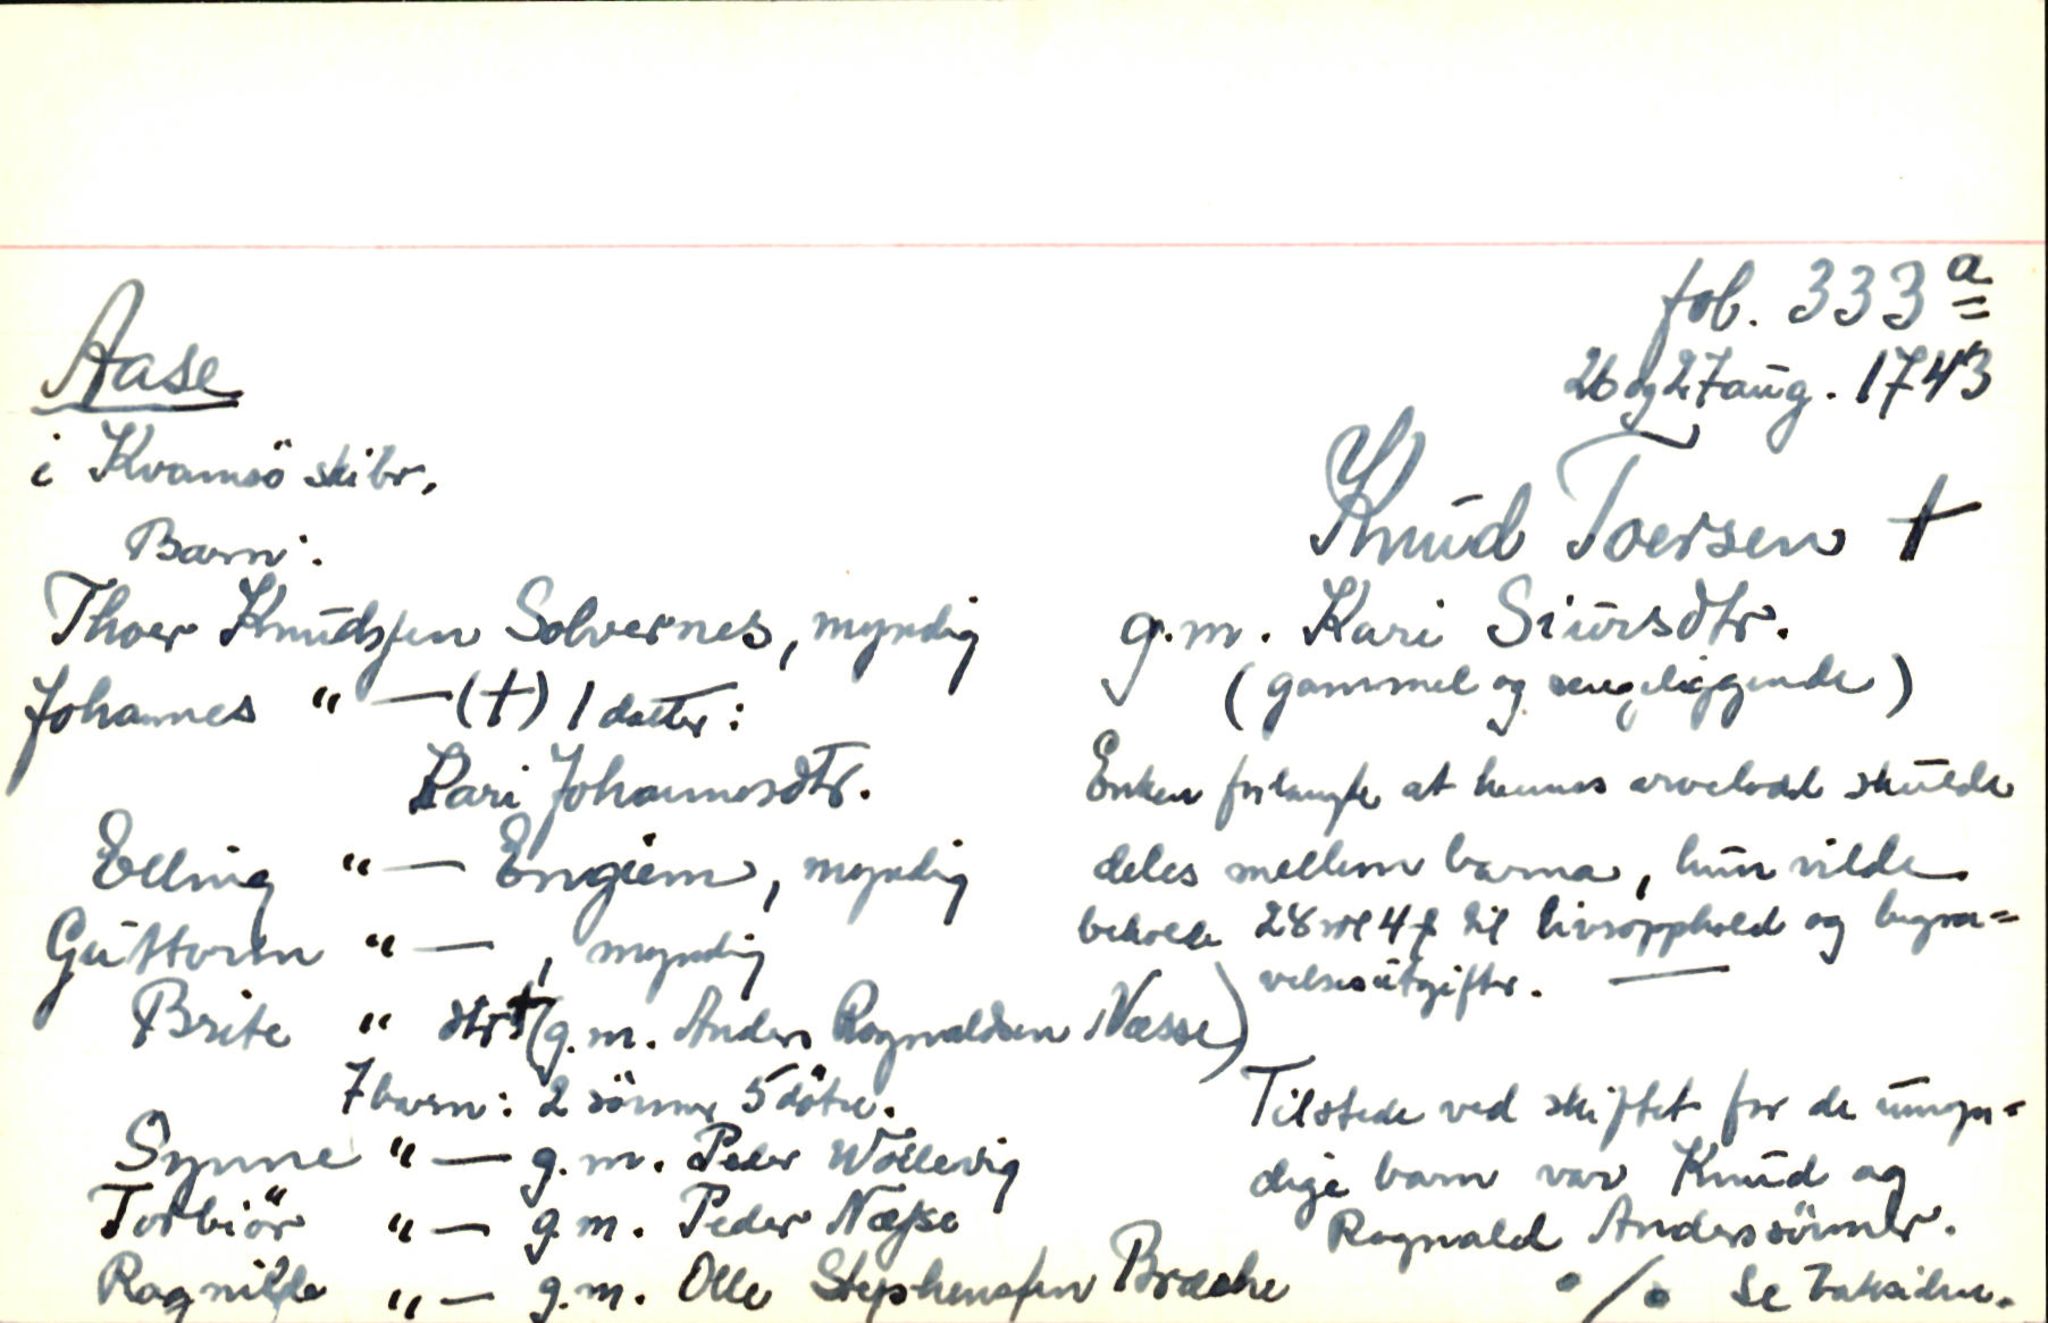 fol. 333 a
26 og 27 aug. 1743
Aase
i Kvamsö skibr.
Knud Toersen †
g.m. Kari Siursdtr.
(gammel og sengeliggende)
Enken forlangte at hennes arvelodd skulde
deles mellem barna, hun vilde
beholde 28 rd 4 β til livsopphold og begra=
velsesutgifter. —
Tilstede ved skiftet for de umyn=
dige barn var Knud og
Ragnald Anderssönner.
•/• Se baksiden.
Barn:
Thoer Knudsen Solvernes, myndig
Johannes " — (†) 1 datter:
Kari Johannesdtr.
Elling " — Engiem, myndig
Guttorm " —, myndig
Brite " dtr † (g.m. Anders Ragnvaldsen Næsse)
7 barn: 2 sönner 5 dötre.
Synne " — g.m. Peder Wollevig
Torbiör " — g.m. Peder Næsse
Ragnilde " — g.m. Olle Stephensen Bræche